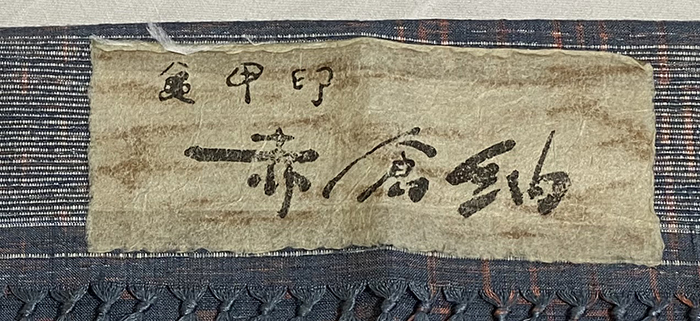 亀甲印
赤倉紬